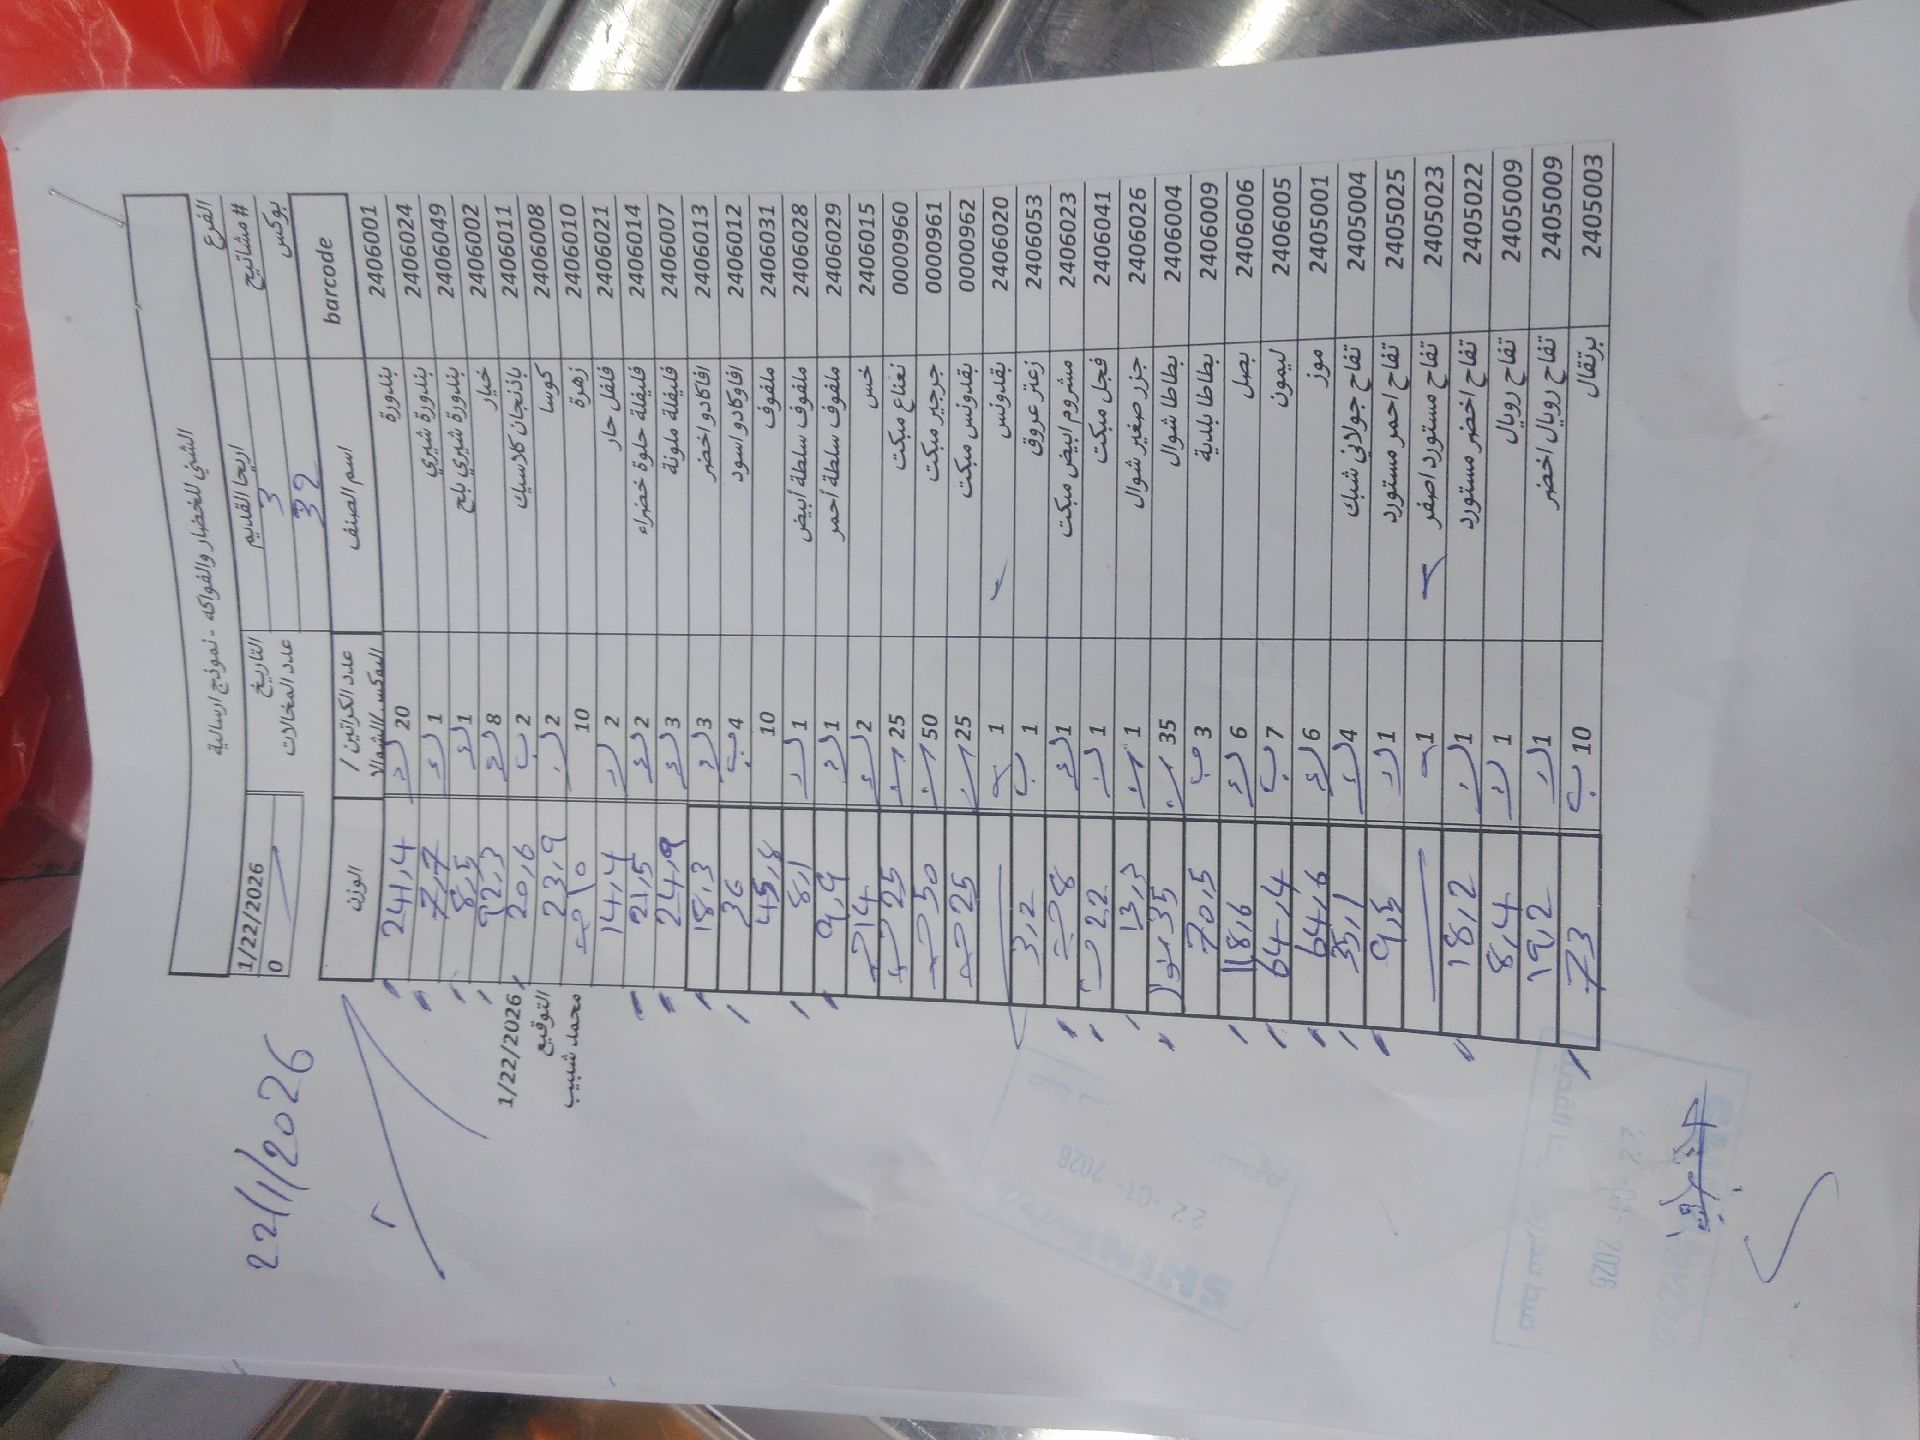 الشني للخضار والفواكه - نموذج ارسالية
الفرع اريحا القديم التاريخ 1/22/2026
# مشاتيح 3 عدد المخالات 0
بوكس 32
barcode اسم الصنف عدد الكراتين / البوكس/الشوال الوزن
2406001 بندورة 20 244,4
2406024 بندورة شيري 1 7,7
2406049 بندورة شيري بلح 1 8,5
2406002 خيار 8 92,3
2406011 باذنجان كلاسيك 2 ب 20,6
2406008 كوسا 2 23,9
2406010 زهرة 10 10
2406021 فلفل حار 2 14,4
2406014 فليفلة حلوة خضراء 2 21,5
2406007 فليفلة ملونة 3 24,9
2406013 افاكادو اخضر 3 18,3
2406012 افاوكادو اسود 4 ب 36
2406031 ملفوف 10 45,8
2406028 ملفوف سلطة أبيض 1 8,1
2406029 ملفوف سلطة أحمر 1 9,9
2406015 خس 2 14
0000960 نعناع مبكت 25 25
0000961 جرجير مبكت 50 50
0000962 بقدونس مبكت 25 25
2406020 بقدونس 1
2406053 زعتر عروق 1 ب 3,2
2406023 مشروم ابيض مبكت 1 8
2406041 فجل مبكت 1 22
2406026 جزر صغير شوال 1 13,3
2406004 بطاطا شوال 35 35
2406009 بطاطا بلدية 3 ب 70,5
2406006 بصل 6 118,6
2406005 ليمون 7 ب 64,4
2405001 موز 6 64,6
2405004 تفاح جولاني شبك 4 35,1
2405025 تفاح احمر مستورد 1 9,5
2405023 تفاح مستورد اصفر 1
2405022 تفاح اخضر مستورد 1 18,2
2405009 تفاح رويال 1 8,4
2405009 تفاح رويال اخضر 1 19,2
2405003 برتقال 10 ب 73
1/22/2026
التوقيع
محمد شبيب
22/1/2026
22 -01- 2026
22 -01- 2026